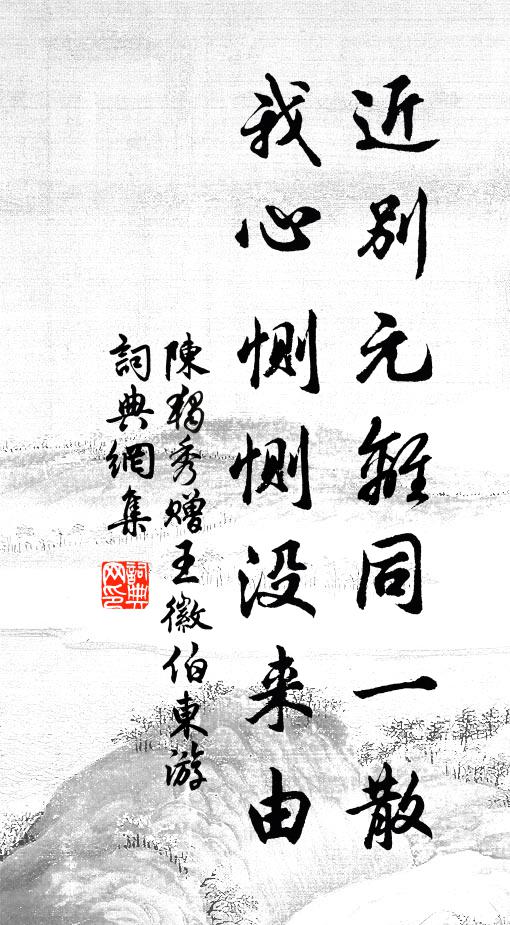 近别元離同一散
我心恻恻没来由
陳獨秀贈王徽伯東游
詞典網集
詞典网印